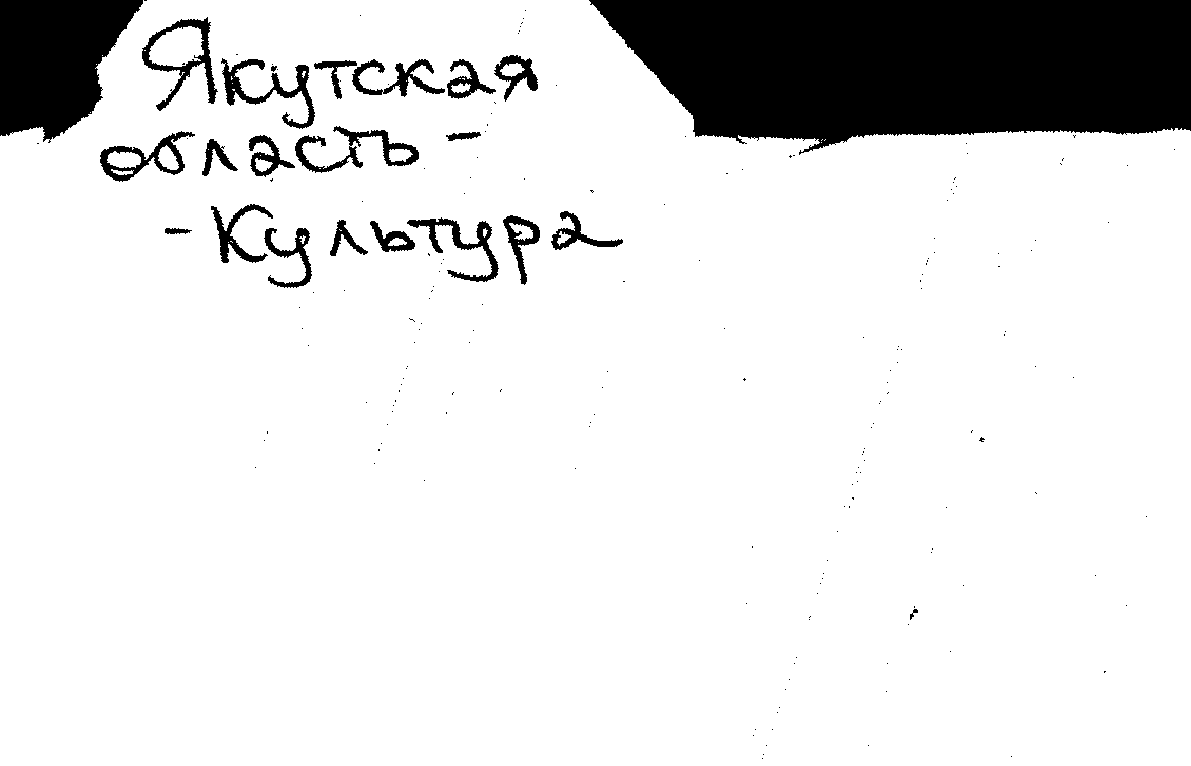 Якутская
область -
- Культура